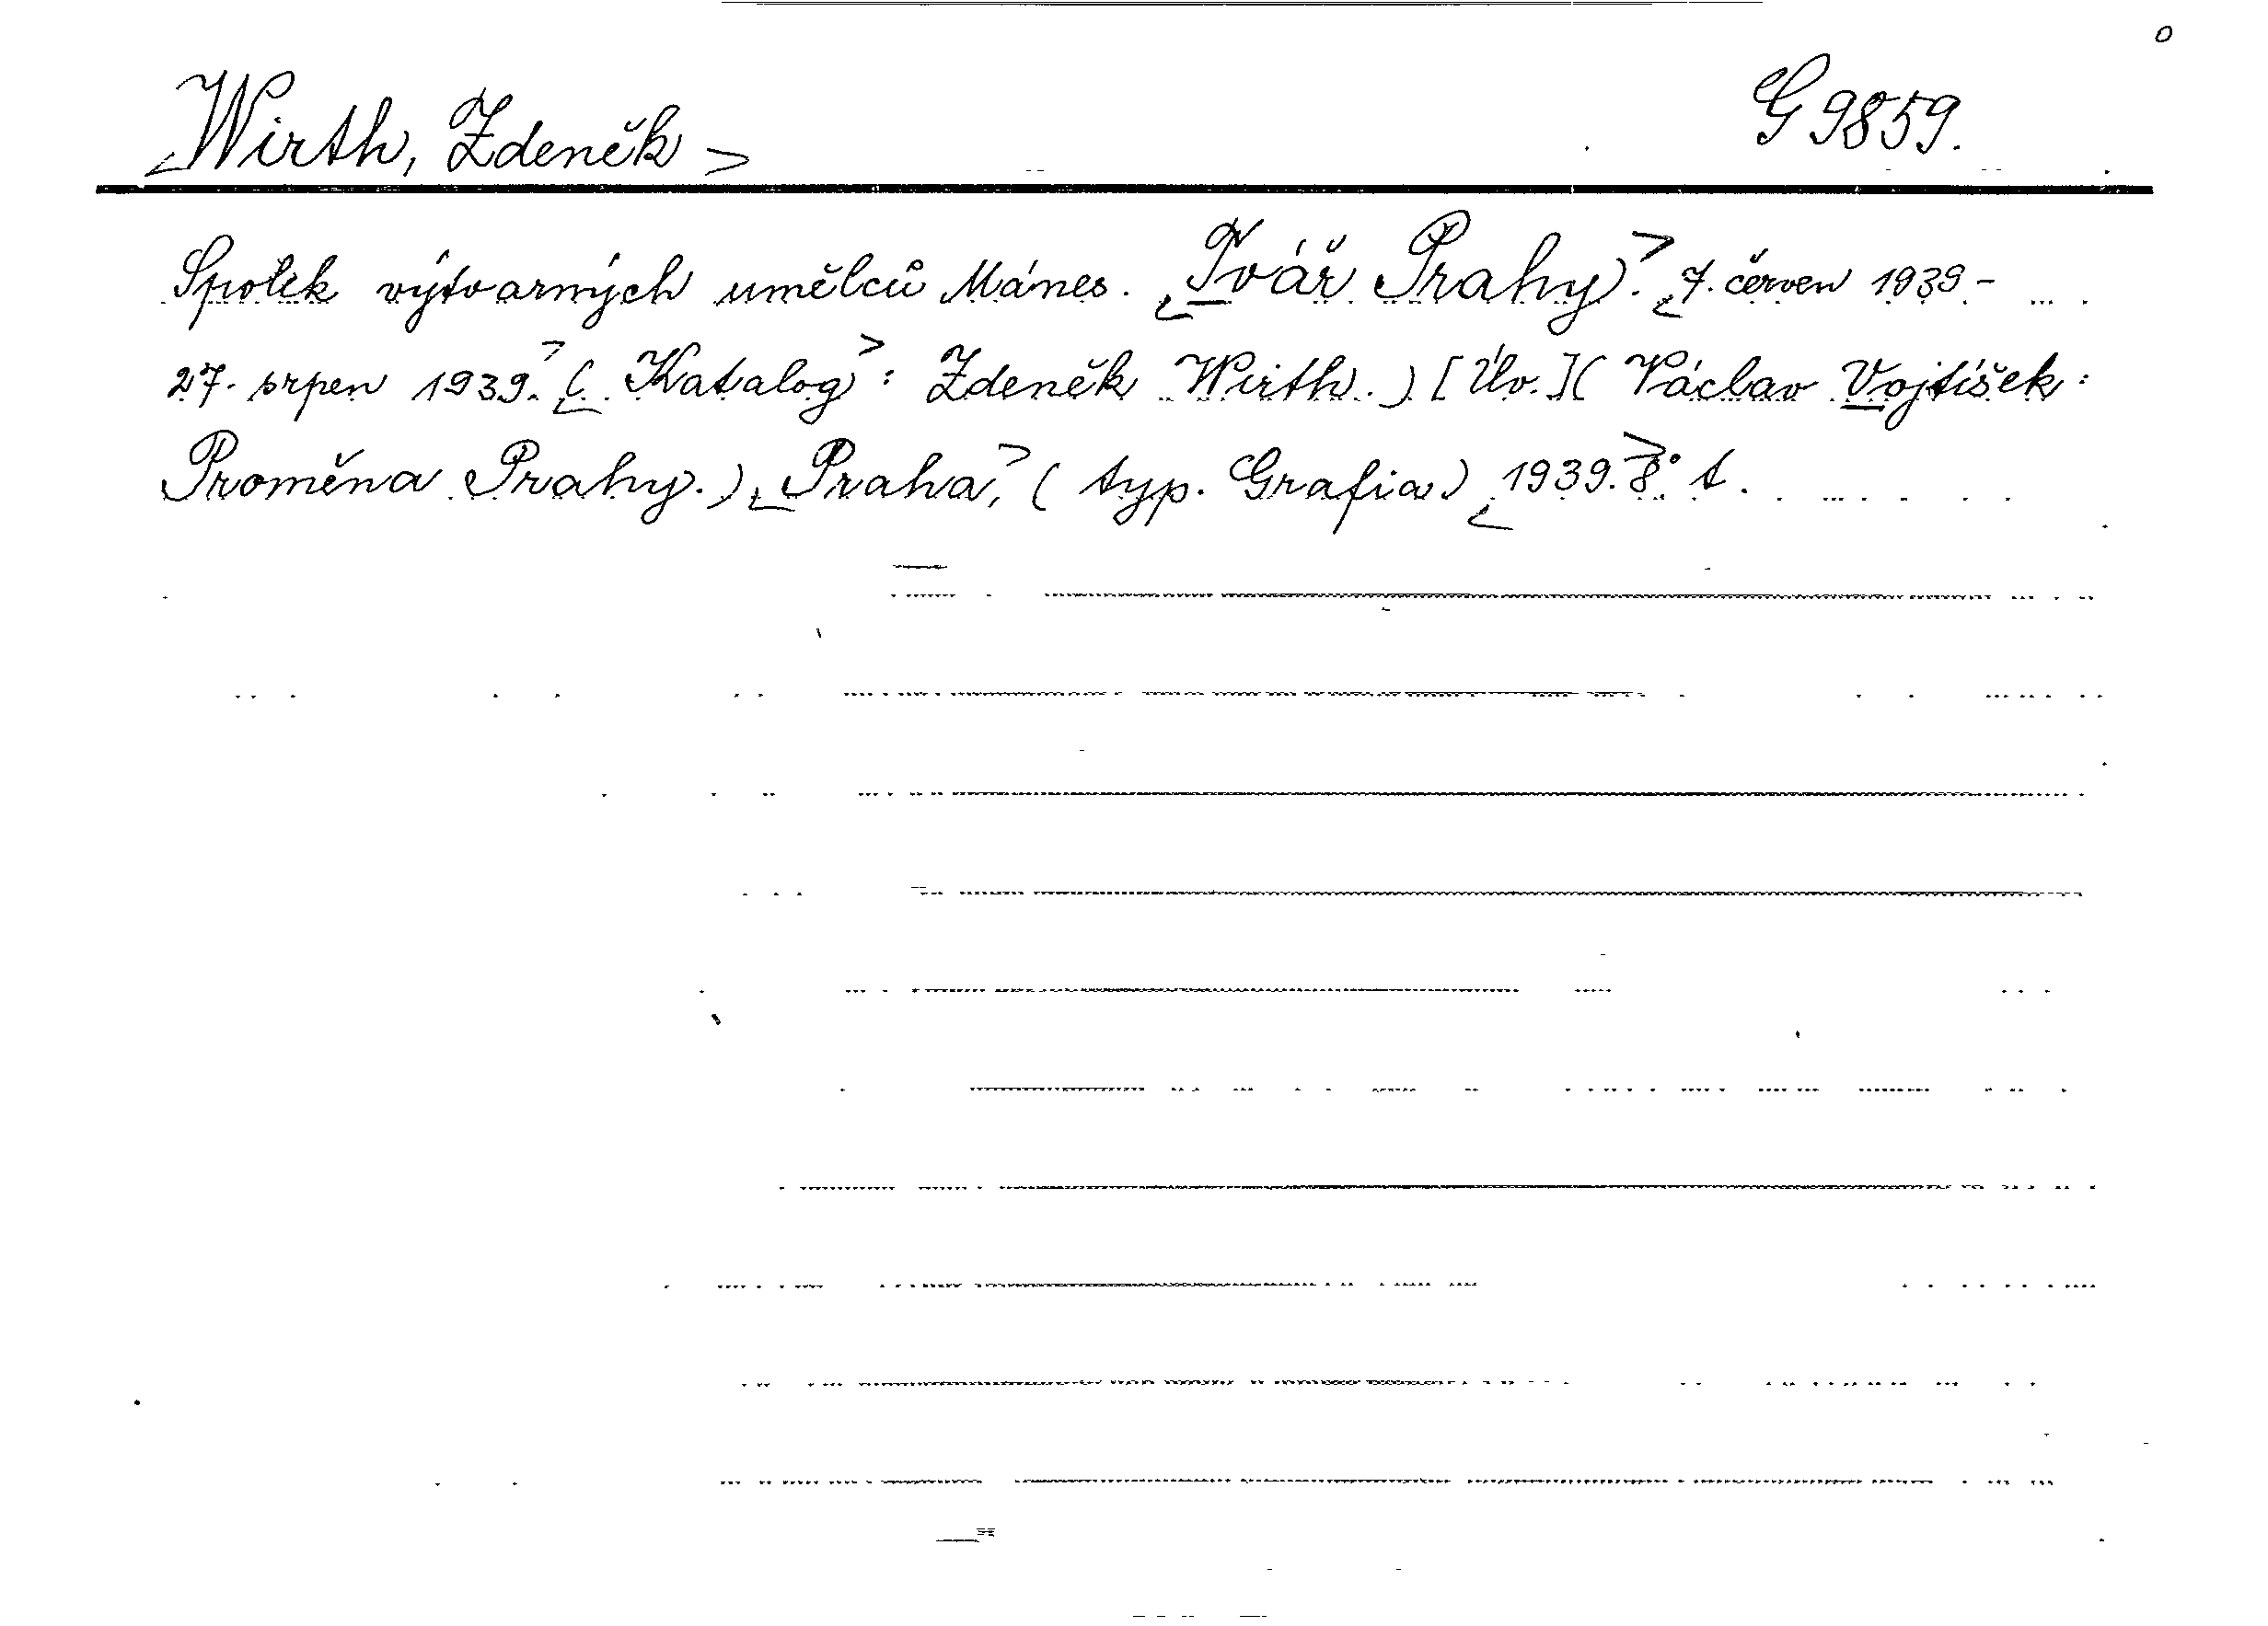 Wirth, Zdeněk G 9859.
Spolek výtvarných umělců Mánes. Tvář Prahy. 7. červen 1939 -
27. srpen 1939. ( Katalog : Zdeněk Wirth. ) [ Úv. ] ( Václav Vojtíšek :
Proměna Prahy. ) Praha, ( typ. Grafia ) 1939. 8° t.